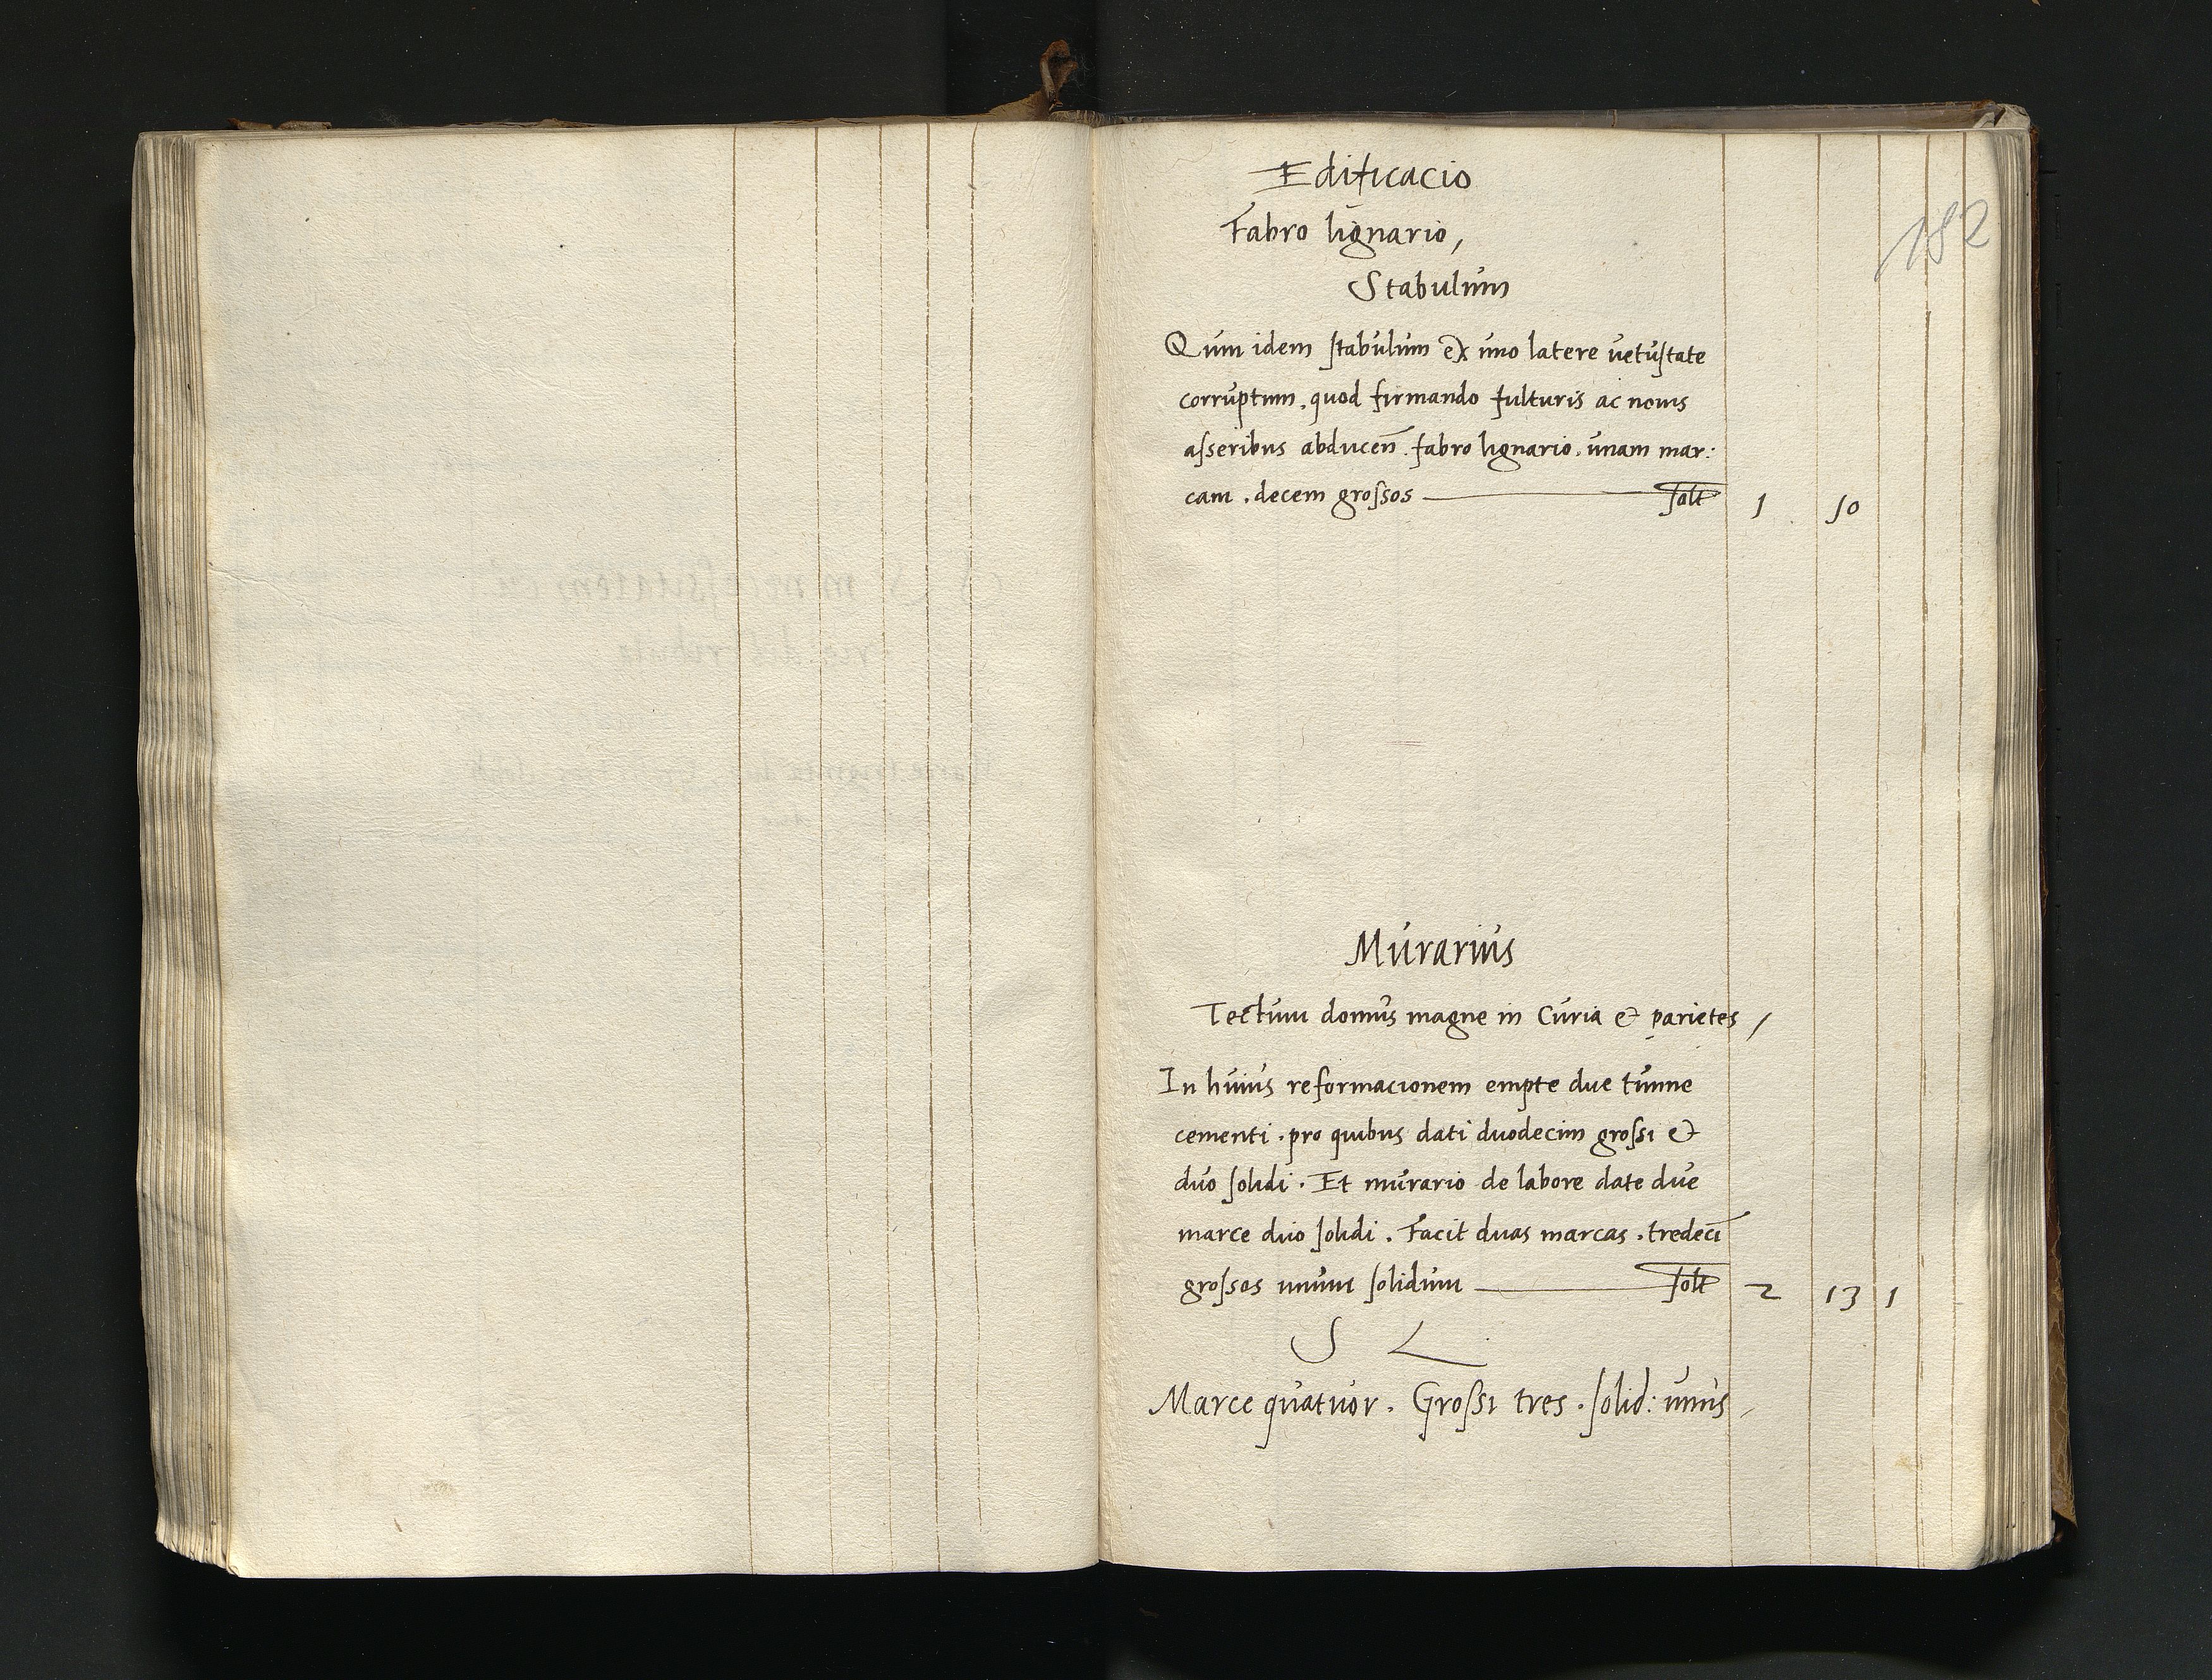 182
Edificacio
Fabro lignario,
Stabulum
Qum idem stabulum ex uno latere vetustate
corruptum. quod firmando fulturis ac nouis
asseribus abducen̄. fabro lignario. unam mar:
cam. decem grossos — solt 1 10
Murarius
Tectum domus magne in Curia & parietes,
In huius reformacionem empte due tunne
cementi. pro quibus dati duodecim grossi &
duo solidi. Et murario de labore date due
marce duo solidi. Facit duas marcas. tredecī
grossos unum solidum — solt 2 13 1
S L
Marce quatuor. Grossi tres. solid: unus,